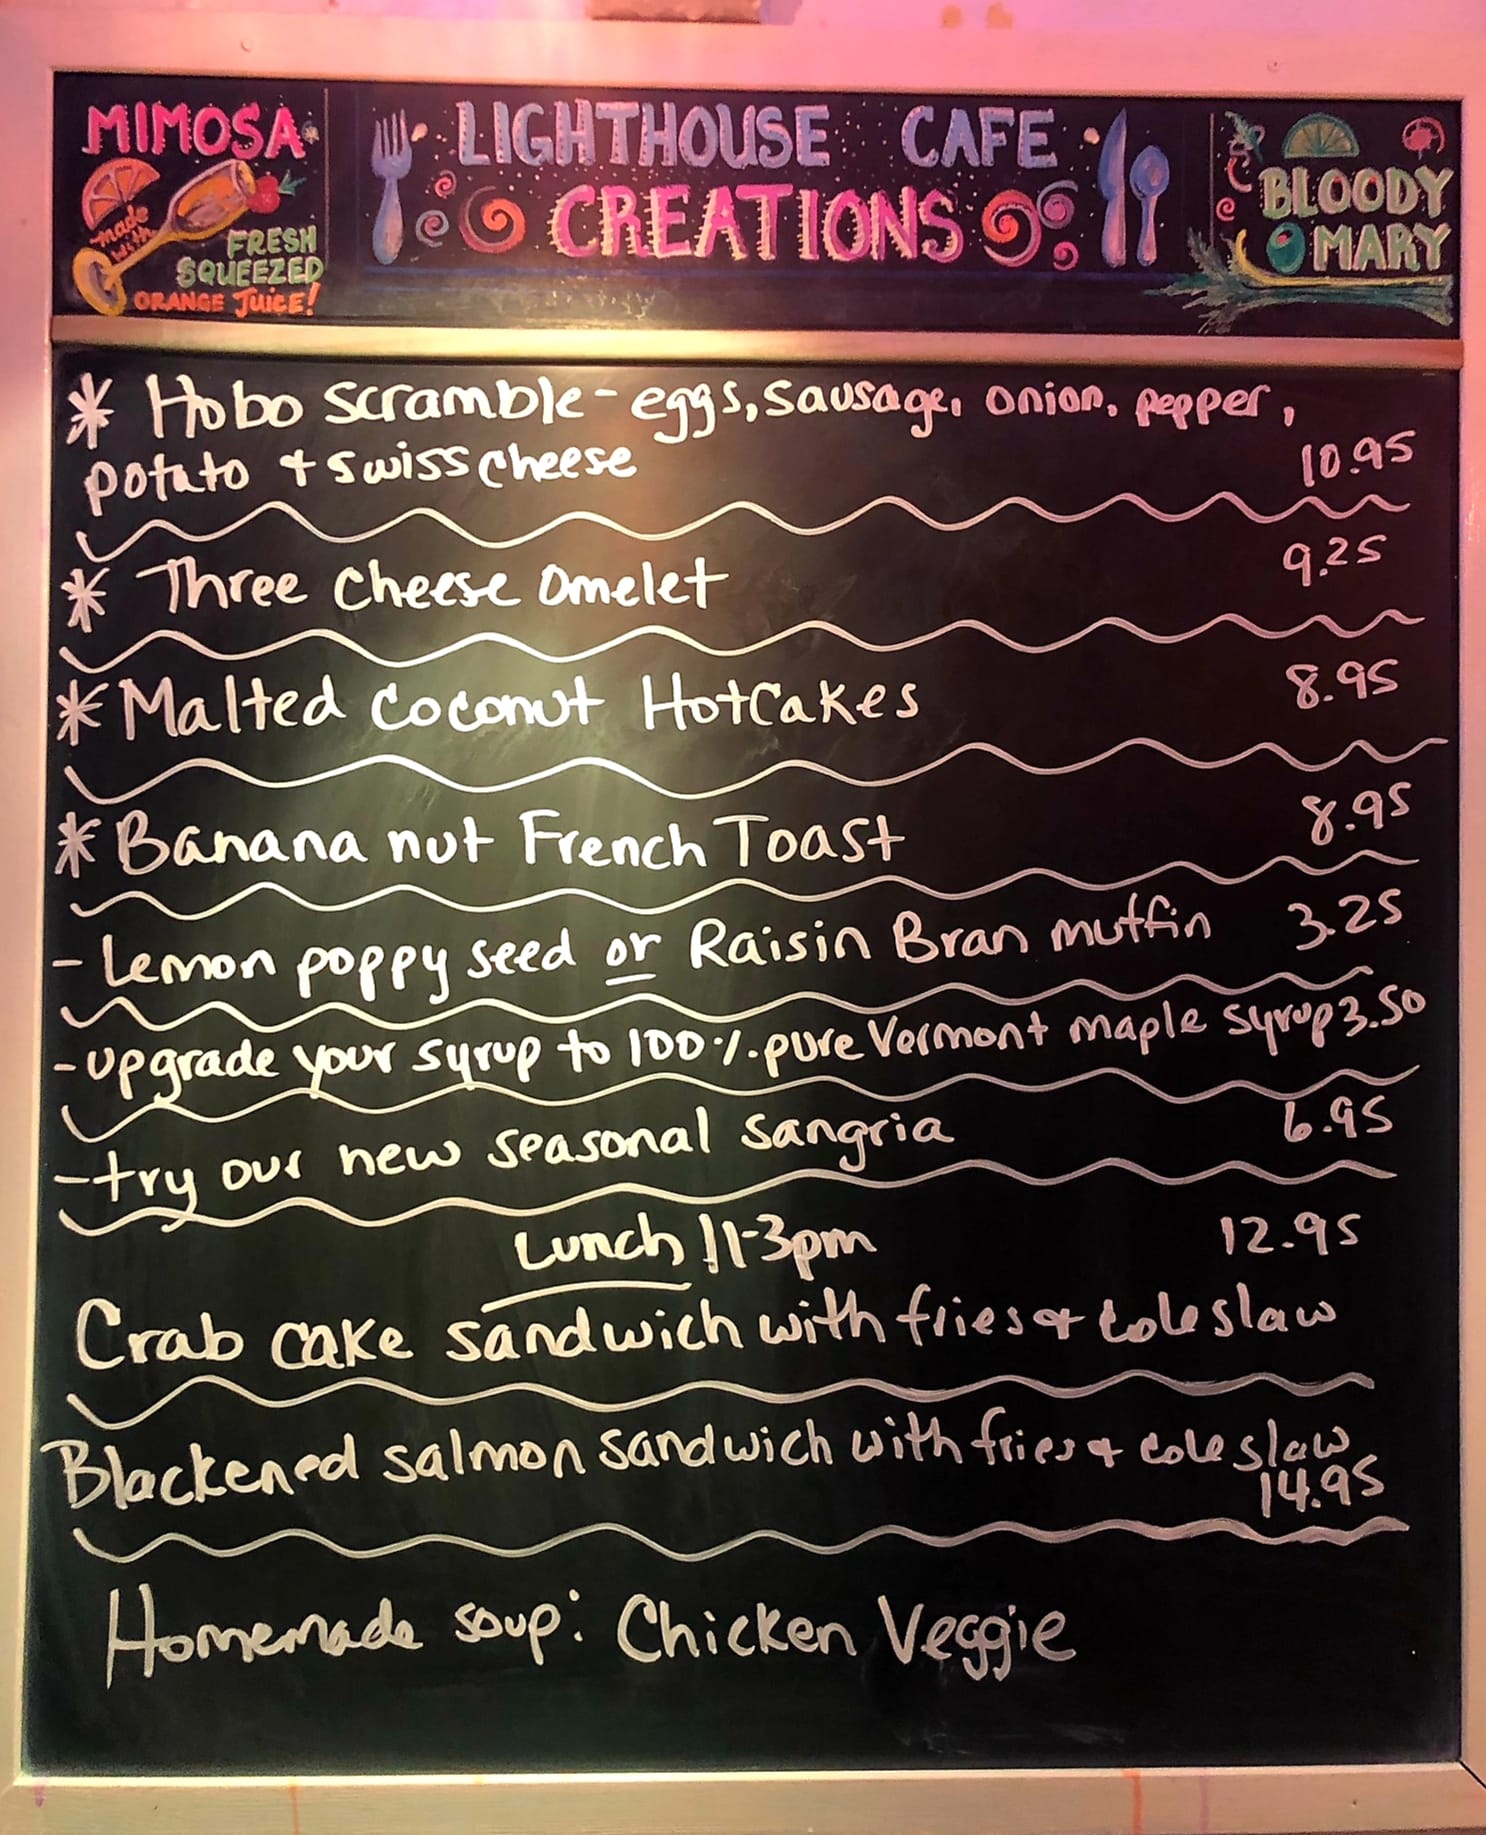 MIMOSA
made
with
FRESH
SQUEEZED
ORANGE JUICE!
LIGHTHOUSE CAFE
CREATIONS
BLOODY
MARY
* Hobo scramble - eggs, sausage, onion, pepper,
potato + swiss cheese 10.95
* Three cheese omelet 9.25
* Malted coconut Hotcakes 8.95
* Banana nut French Toast 8.95
- Lemon poppy seed or Raisin Bran muffin 3.25
- upgrade your syrup to 100% pure Vermont maple syrup 3.50
- try our new seasonal sangria 6.95
Lunch 11-3pm 12.95
Crab cake sandwich with fries + coleslaw
Blackened salmon sandwich with fries + coleslaw
14.95
Homemade soup: Chicken Veggie